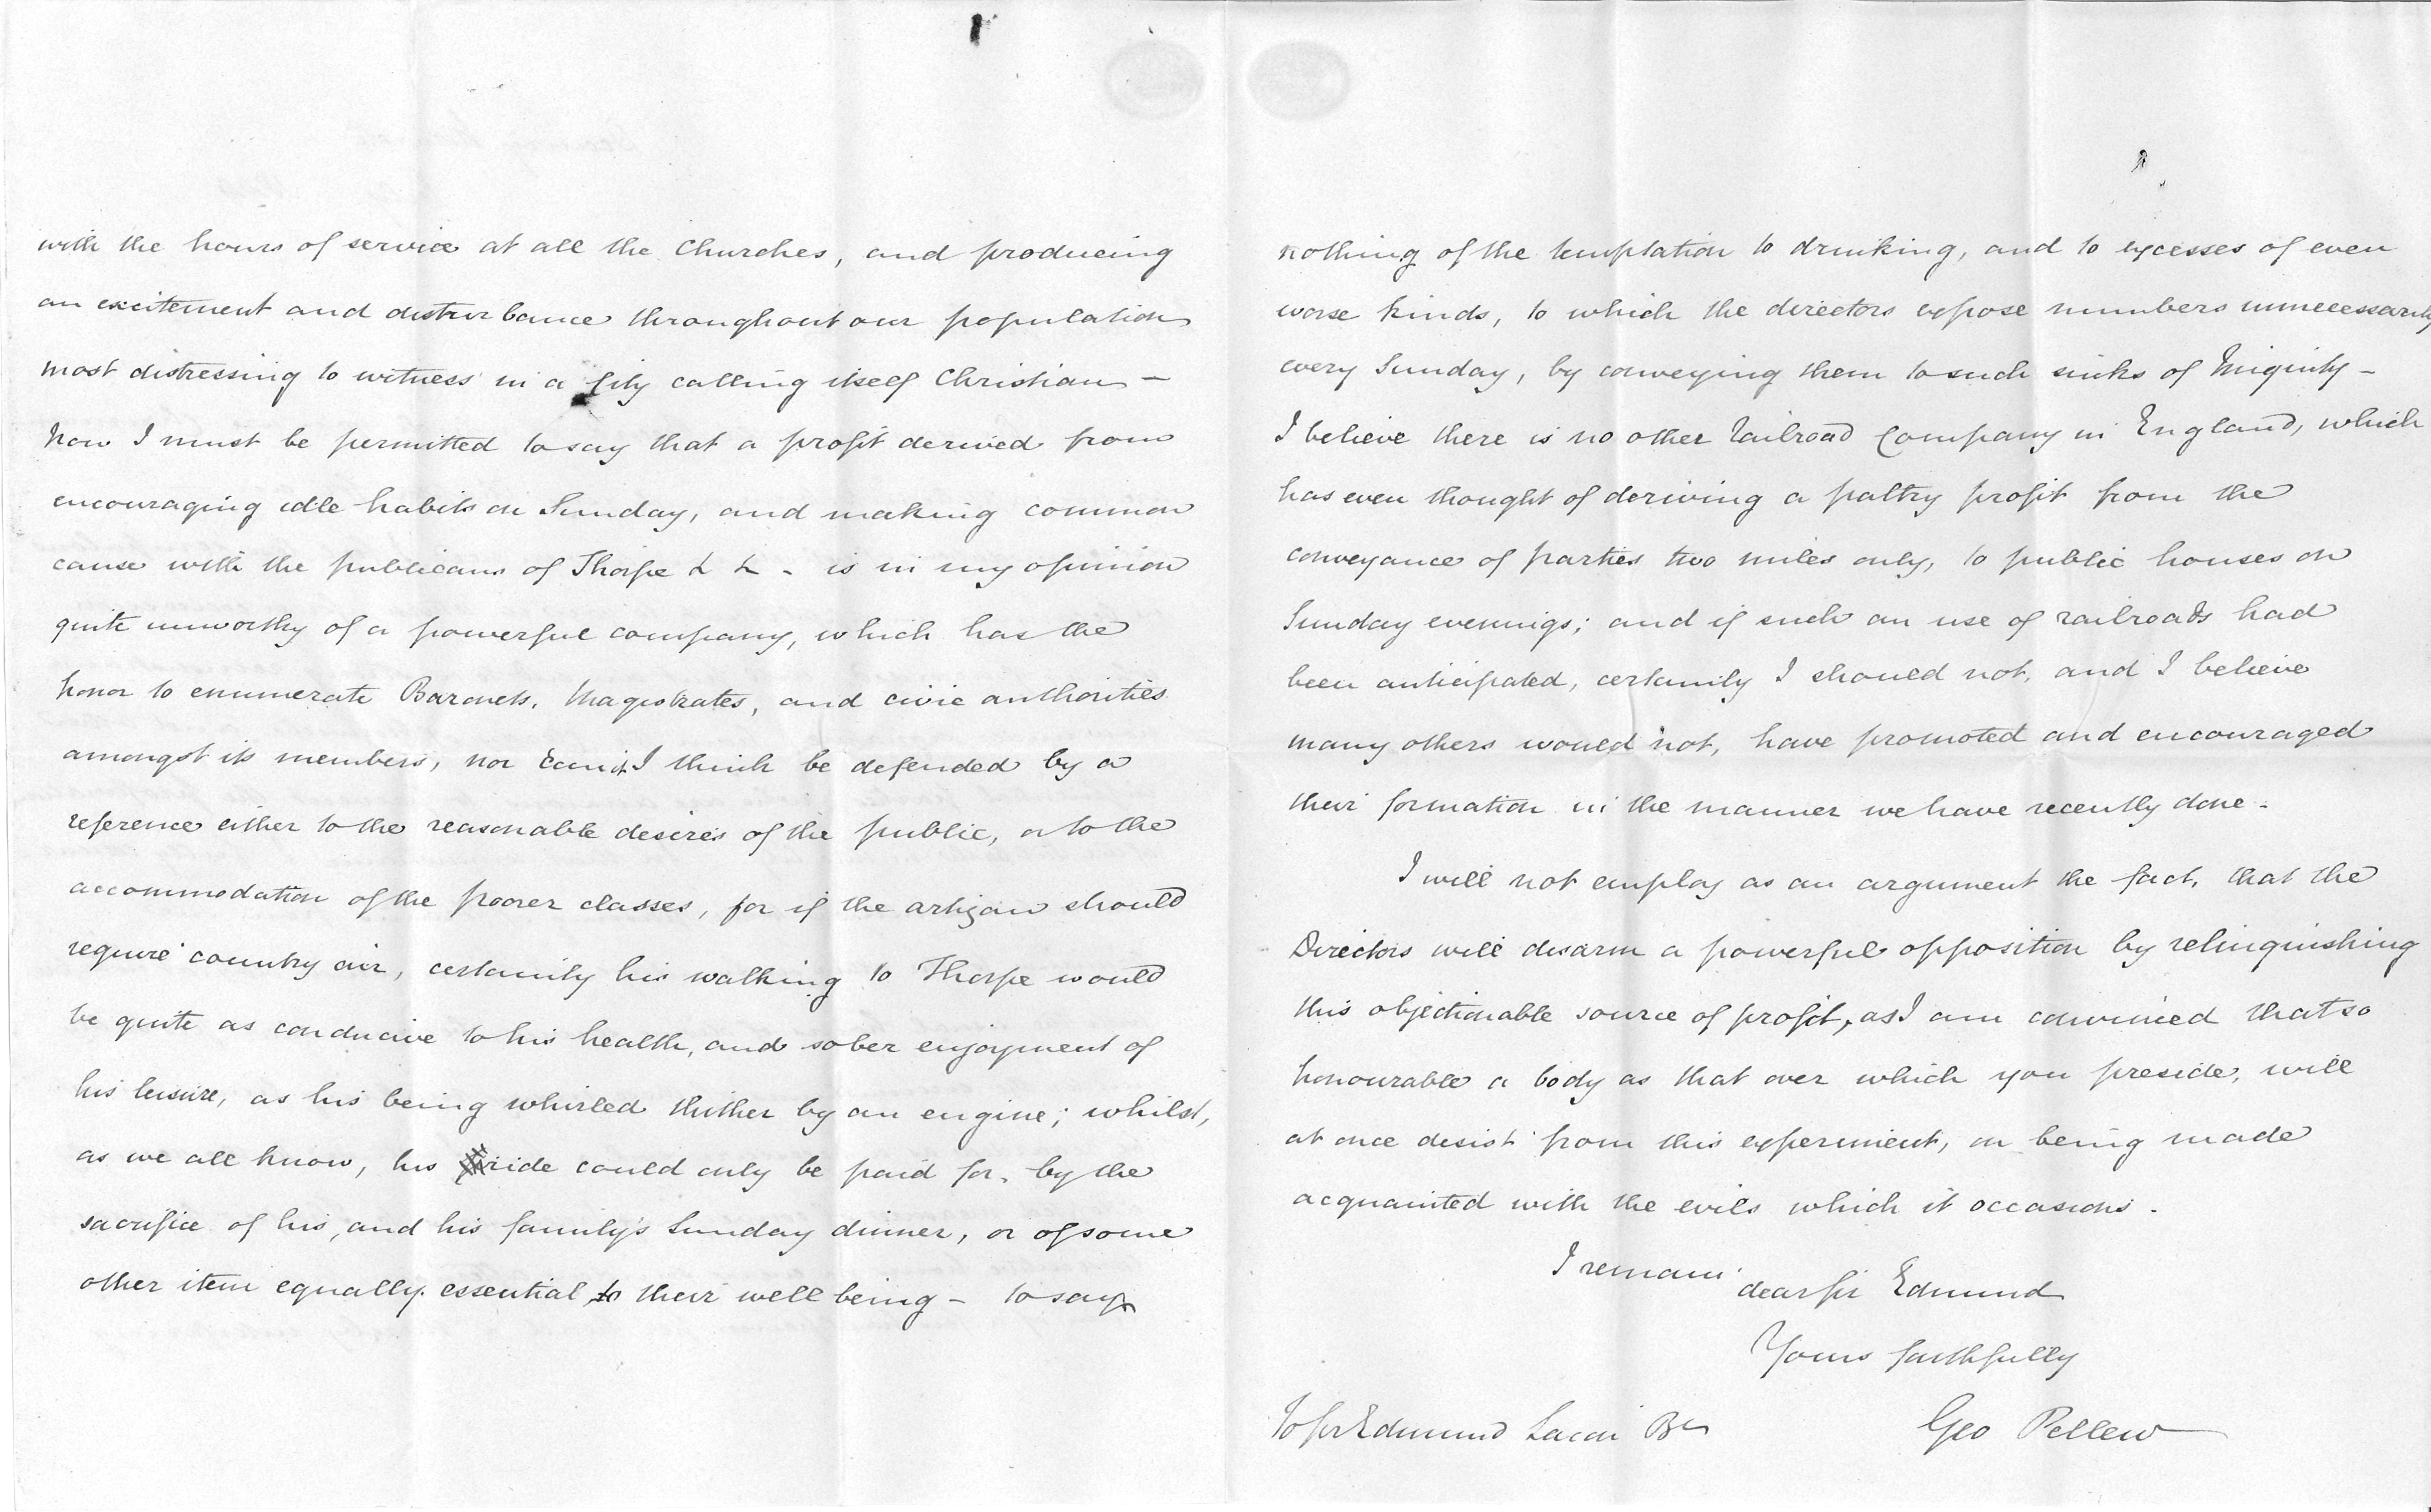 with the hours of service at all the Churches, and producing
an excitement and disturbance throughout our population
most distressing to witness in a City calling itself Christian -
Now I must be permitted to say that a profit derived from
encouraging idle habits on Sunday, and making common
cause with the publicans of Thorpe & & - is in my opinion
quite unworthy of a powerful company, which has the
honor to enumerate Baronets, Magistrates, and civic authorities
amongst its members, nor can it I think be defended by a
reference either to the reasonable desires of the public, or to the
accommodation of the poorer classes, for if the artizan should
require country air, certainly his walking to Thorpe would
be quite as conducive to his health, and sober enjoyment of
his leisure, as his being whirled thither by an engine; whilst,
as we all know, his ride could only be paid for, by the
sacrifice of his, and his family's Sunday dinner, or of some
other item equally essential to their well being - to say
nothing of the temptation to drinking, and to excesses of even
worse kinds, to which the directors expose numbers unnecessarily
every Sunday, by conveying them to such sinks of Iniquity -
I believe there is no other Railroad Company in England, which
has even thought of deriving a paltry profit from the
conveyance of parties two miles only, to public houses on
Sunday evenings; and if such an use of railroads had
been anticipated, certainly I should not, and I believe
many others would not, have promoted and encouraged
their formation in the manner we have recently done -
I will not employ as an argument the fact, that the
Directors will disarm a powerful opposition by relinquishing
this objectionable source of profit, as I am convinced that so
honourable a body as that over which you preside, will
at once desist from this experiment, on being made
acquainted with the evils which it occasions.
I remain
dear Sir Edmund
Yours faithfully
Geo Pellew
To Sir Edmund Lacon Bt